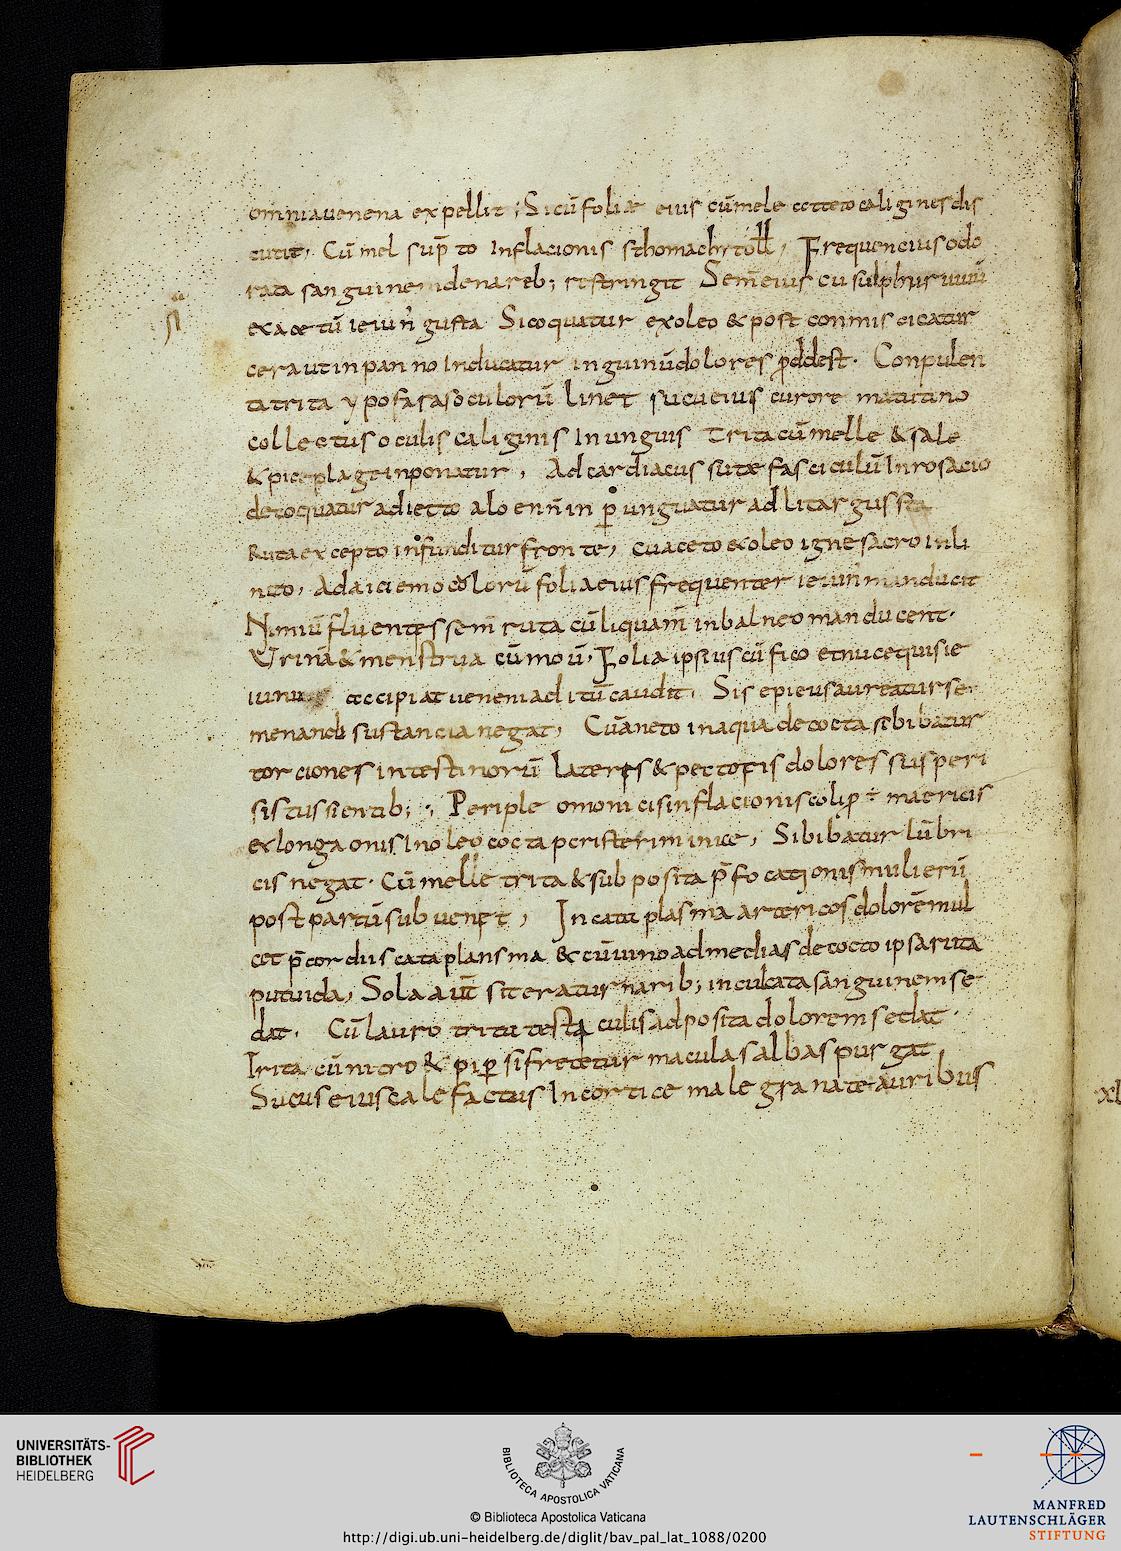 omnia uenena expellit; Sicū folia eius cū mele cocte to caligines dis
cutit. Cū mel sup̄ to Inflacionis sthomachi toll, Frequencius odo
rata sanguinem denareb; restringit Sem̄ eius cu sulphur uiuū
ex acetū ieiun̄ gusta Sicoquatur exoleo & post conmis cicatur
cera ut in panno Inducatur in guinū dolores p̄ddest. Conpulen
ta trita ypofaras oculorū linet sucu eius curore matutino
collectus oculis caliginis In unguis Trita cū melle & sale
& pice plage inponatur, Ad cardiacus sutæ fasciculū In rosacio
de coquatur adiecto aloen n̄ in p̄ unguatur ad litargus
Ruta ex cepto infunditur fronte, cu aceto & oleo ignē sacro inli
nito, Folia eius frequenter ieiun̄ manducit
Nimiū fluentes sem̄ ruta cū liquam̄ in balneo manducent.
Urina & menstrua cū mouū, Folia ipsius cū fico et nuce quis ie
accipiat
menandi sustancia negat, Cū aneto in aqua decocta se bibatur
torciones intestinorū Lateres & pectoris dolores suspeři
sis tussientib; Periple omoni cis inflacionis colip̄ ÷ matricis
ex longaonis In oleo cocta per isterim inice, Si bibatur lūbri
cis negat. Cū melle trita & sub posita p̄focationis mulierū
post partū sub uenit, In cata plasma artericos dolorē mul
cet p̄cordiis cataplansma & cū uino ad medias decocto ipsa ruta
putuida, Sola aut̄ si teratur narib; inculcata sanguinem se
dat. Cū lauro tritu testa culis adposita dolorem sedat.
Trita cū nitro & pip̄ si fretetur maculas albas purgat
Sucus eius calefactus In cortice male granate auribus
UNIVERSITÄTS-
BIBLIOTHEK
HEIDELBERG
BIBLIOTECA APOSTOLICA VATICANA
© Biblioteca Apostolica Vaticana
http://digi.ub.uni-heidelberg.de/diglit/bav_pal_lat_1088/0200
MANFRED
LAUTENSCHLÄGER
STIFTUNG